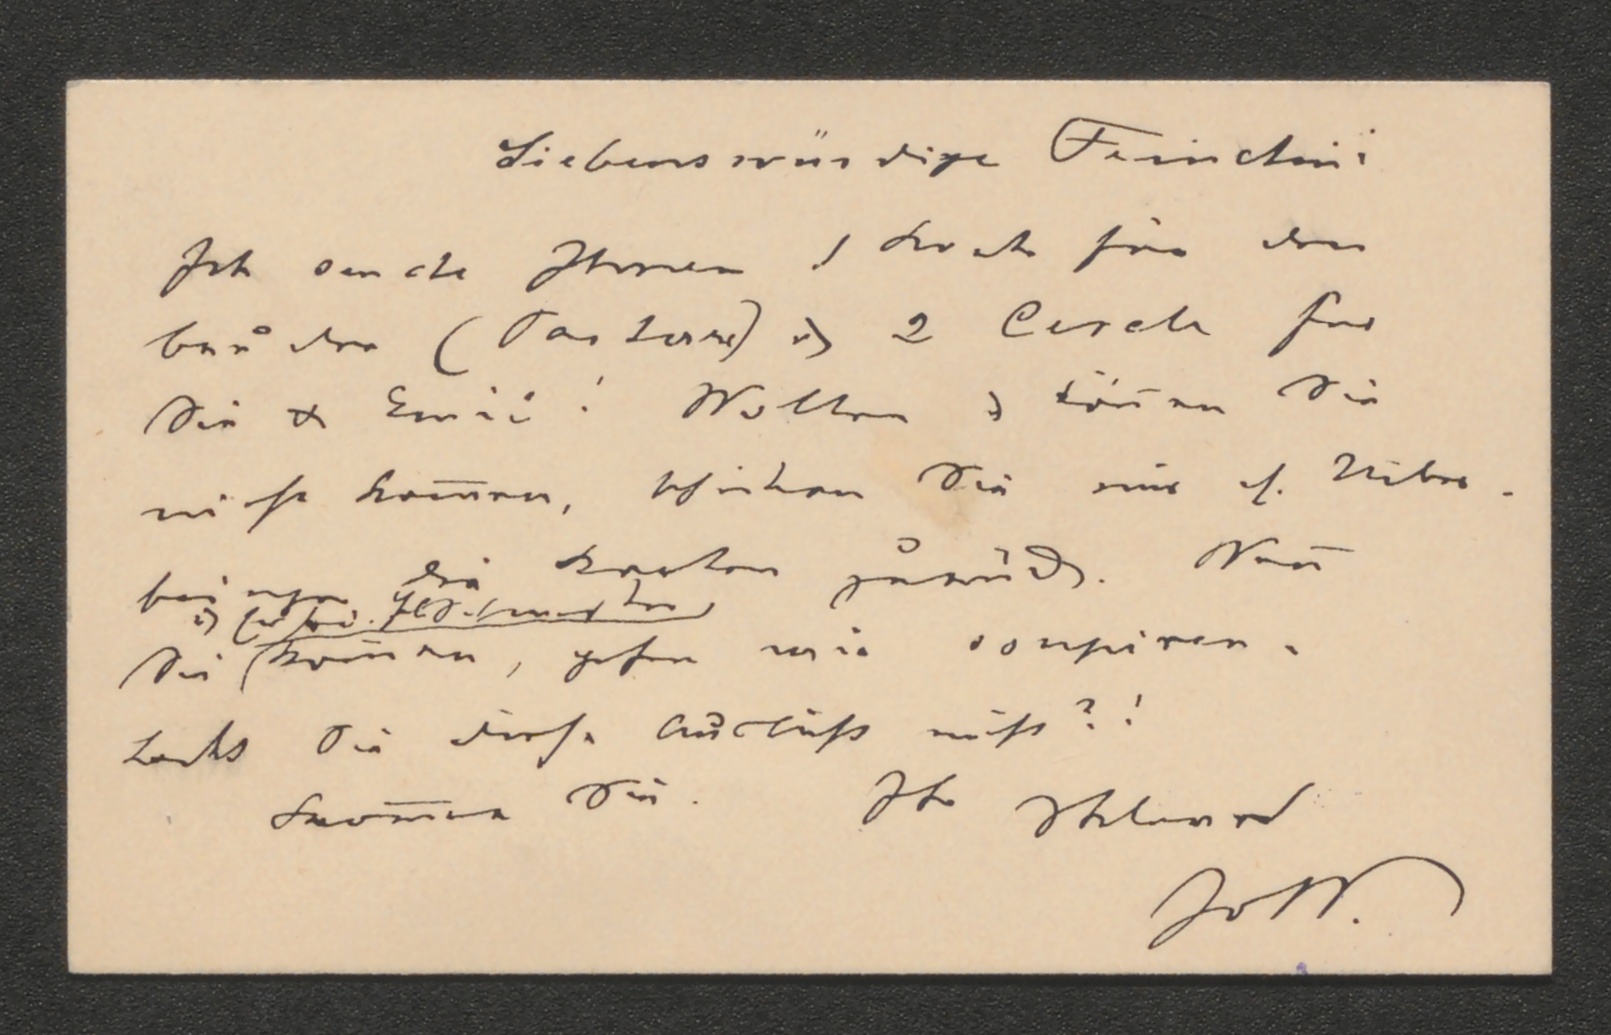 Liebenswürdige Freundin!
Ich sende Ihnen 1 Karte für den
Bruder (Parterre) & 2 Cercle für
Sie & Emil! Wollen & können Sie
nicht kommen, schicken Sie mir
die Karten zurück. Wenn
Sie kommen, gehen wir soupiren.
Lockt Sie diese Aussicht nicht?!
Kommen Sie. Ihr